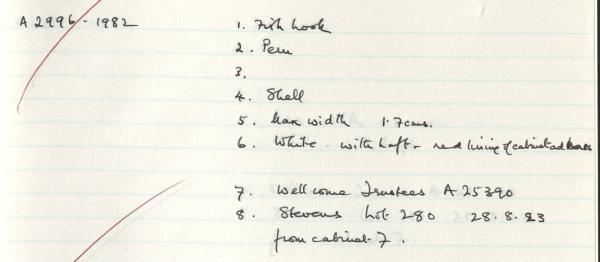 A 2996 - 1982
1. Fish hook
2. Peru
3.
4. Shell
5. Max width 1.7cms.
6. White. with haft - red lining of cabinet ad
7. Wellcome Trustees A 25390
8. Stevens Lot 280 28.8.23
from cabinet 7.